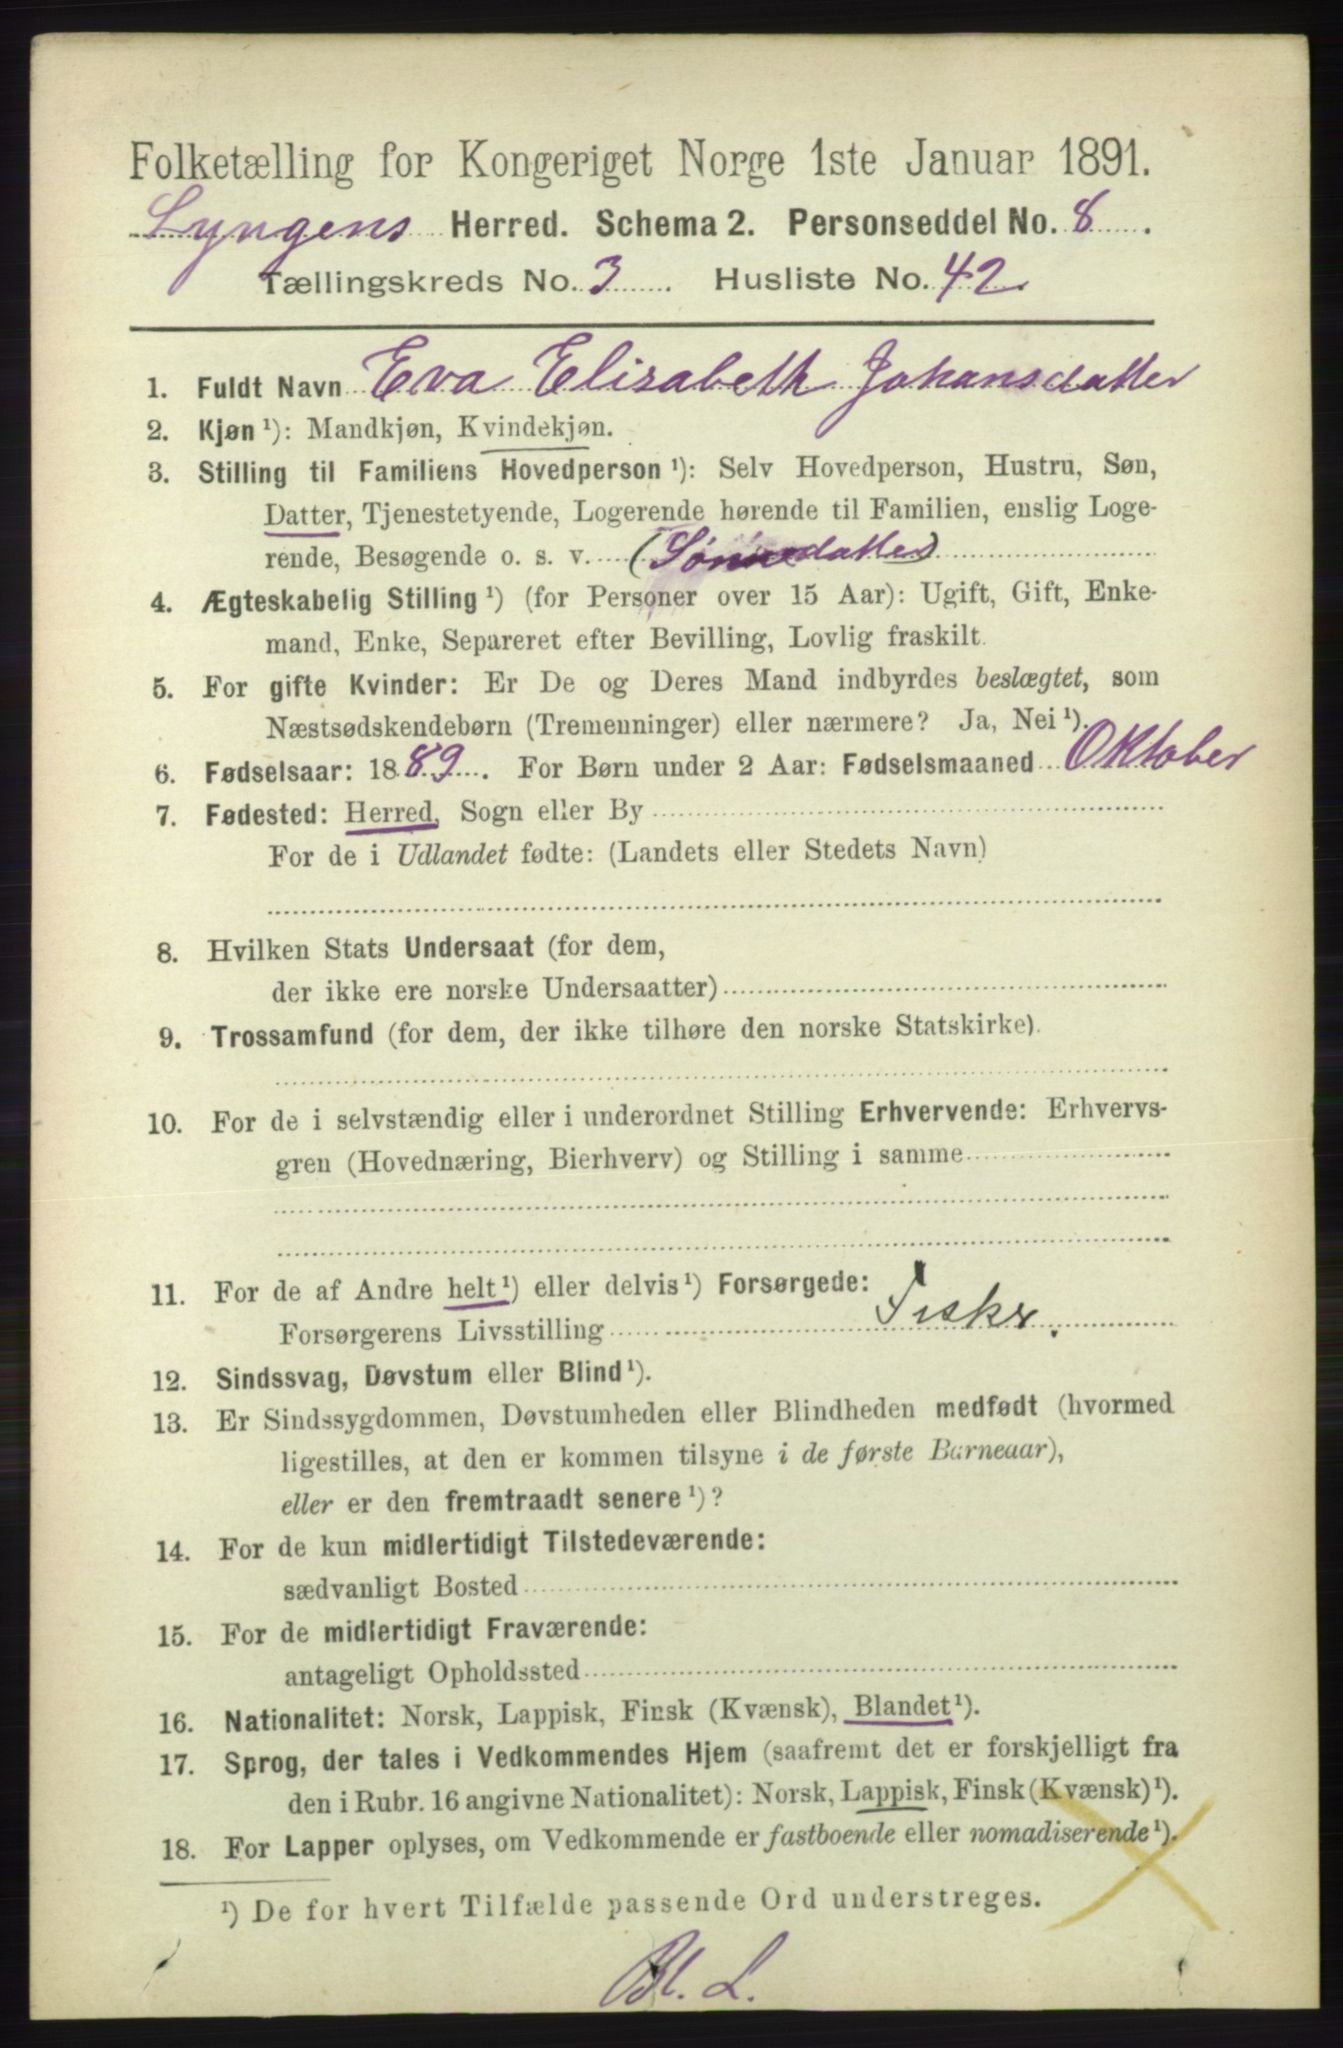 Folketælling for Kongeriget Norge 1ste Januar 1891.
Lyngens Herred. Schema 2. Personseddel No. 8.
Tællingskreds No. 3. Husliste No. 42.
1. Fuldt Navn Eva Elisabeth Johansdatter
2. Kjøn¹): Mandkjøn, Kvindekjøn.
3. Stilling til Familiens Hovedperson¹): Selv Hovedperson, Hustru, Søn,
Datter, Tjenestetyende, Logerende hørende til Familien, enslig Loge-
rende, Besøgende o. s. v. (Sønnedatter)
4. Ægteskabelig Stilling¹) (for Personer over 15 Aar): Ugift, Gift, Enke-
mand, Enke, Separeret efter Bevilling, Lovlig fraskilt.
5. For gifte Kvinder: Er De og Deres Mand indbyrdes beslægtet, som
Næstsødskendebørn (Tremenninger) eller nærmere? Ja, Nei¹).
6. Fødselsaar: 1889. For Børn under 2 Aar: Fødselsmaaned Oktober
7. Fødested: Herred, Sogn eller By
For de i Udlandet fødte: (Landets eller Stedets Navn)
8. Hvilken Stats Undersaat (for dem,
der ikke ere norske Undersaatter)
9. Trossamfund (for dem, der ikke tilhøre den norske Statskirke).
10. For de i selvstændig eller i underordnet Stilling Erhvervende: Erhvervs-
gren (Hovednæring, Bierhverv) og Stilling i samme
11. For de af Andre helt¹) eller delvis¹) Forsørgede:
Forsørgerens Livsstilling Fisker.
12. Sindssvag, Døvstum eller Blind¹).
13. Er Sindssygdommen, Døvstumheden eller Blindheden medfødt (hvormed
ligestilles, at den er kommen tilsyne i de første Barneaar),
eller er den fremtraadt senere¹)?
14. For de kun midlertidigt Tilstedeværende:
sædvanligt Bosted
15. For de midlertidigt Fraværende:
antageligt Opholdssted
16. Nationalitet: Norsk, Lappisk, Finsk (Kvænsk), Blandet¹).
17. Sprog, der tales i Vedkommendes Hjem (saafremt det er forskjelligt fra
den i Rubr. 16 angivne Nationalitet): Norsk, Lappisk, Finsk (Kvænsk)¹).
18. For Lapper oplyses, om Vedkommende er fastboende eller nomadiserende¹).
¹) De for hvert Tilfælde passende Ord understreges.
Bl. L.